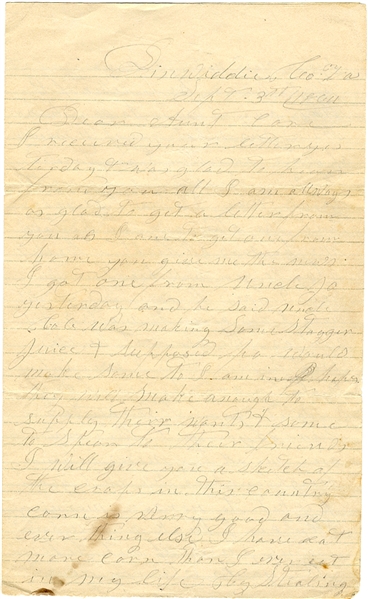 Dinwiddie, Co. Va
Sept. 3rd
Dear Aunt
I received your letter yes
terday & was glad to hear
from you all I am allways
as glad to get a letter from
you as I am to get one from
home you give me the news
I got one from Uncle Jo
yesterday and he said uncle
was making some Stagger
Juice & supposed you would
make some to I am in hopes
they will make enough to
supply their wants & some
to spear to their friends
I will give you a sketch of
the crops in this country
corn is verry good and
ever thing else I have eat
more corn than I ever eat
in my life by stealing